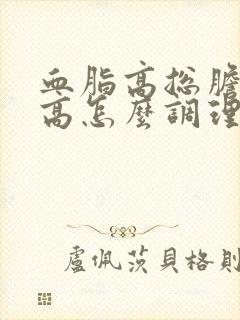 血脂高总膽
高怎麼調理
盧佩茨貝格則